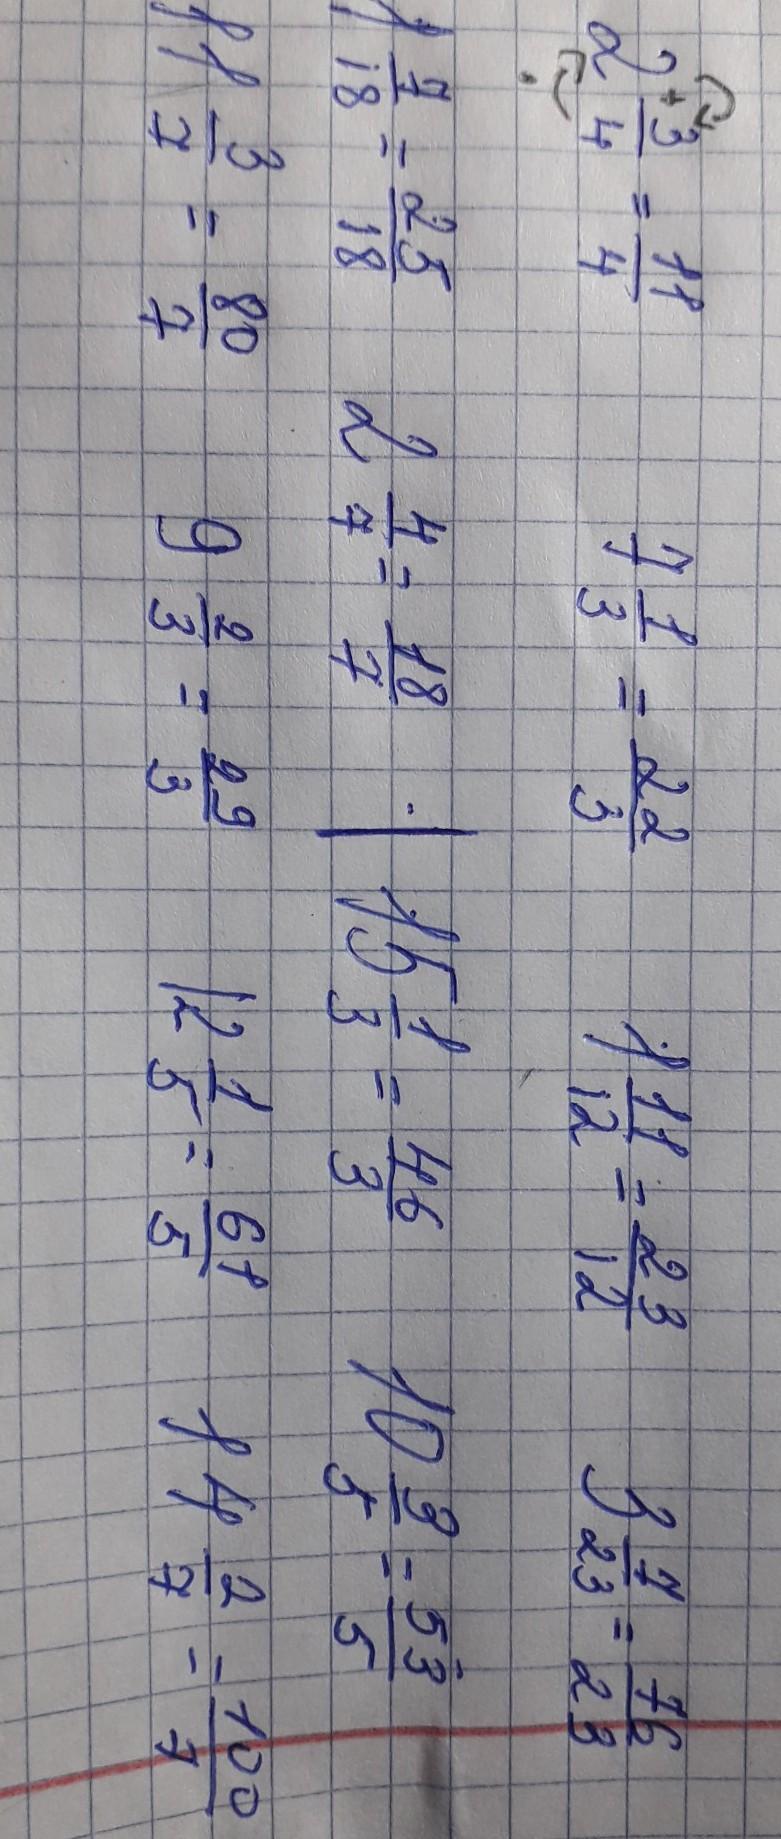 2 3/4 = 11/4   7 1/3 = 22/3   1 11/12 = 23/12   3 7/23 = 76/23
1 7/18 = 25/18   2 4/7 = 18/7 | 15 1/3 = 46/3   10 3/5 = 53/5
11 3/7 = 80/7   9 2/3 = 29/3   12 1/5 = 61/5   14 2/7 = 100/7